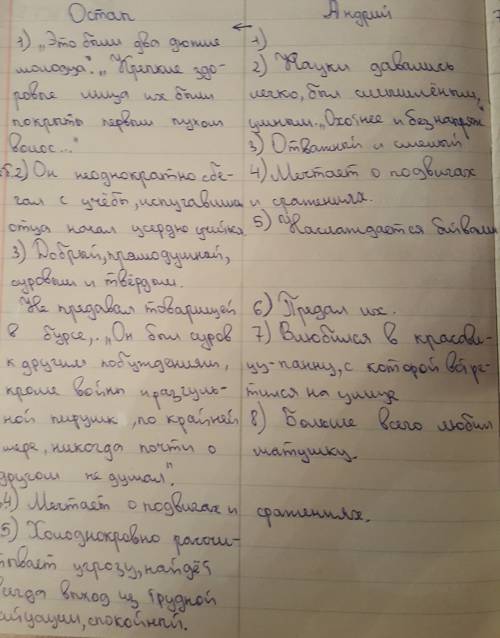 Остап
1) „Это были два дюжие
молодца". „Крепкие здо-
ровые лица их были
покрыты первым пухом
волос..."
2) Он неоднократно сбе-
гал с учёбы, испугавшись
отца начал усердно
3) Добрый, прямодушный,
суровым и твёрдым.
Не предавал товарищей
в бурсе,. „Он был суров
к другим побуждениям,
кроме войны и разгуль-
ной пирушки, по крайней
мере, никогда почти о
другом не думал".
4) Мечтает о подвигах и сражениях.
5) Хладнокровно рассчи-
тывает угрозу, найдёт
всегда выход из трудной
ситуации, спокойный.
Андрий
1)
2) Науки давались
легко, был смышлёным,
умным. „Охотнее и без напряж
3) Отважный и смелый
4) Мечтает о подвигах
и сражениях.
5) Наслаждается битвами
6) Предал их.
7) Влюбился в красави-
цу-панну, с которой встре-
тился на улице
8) Больше всего любил
матушку.